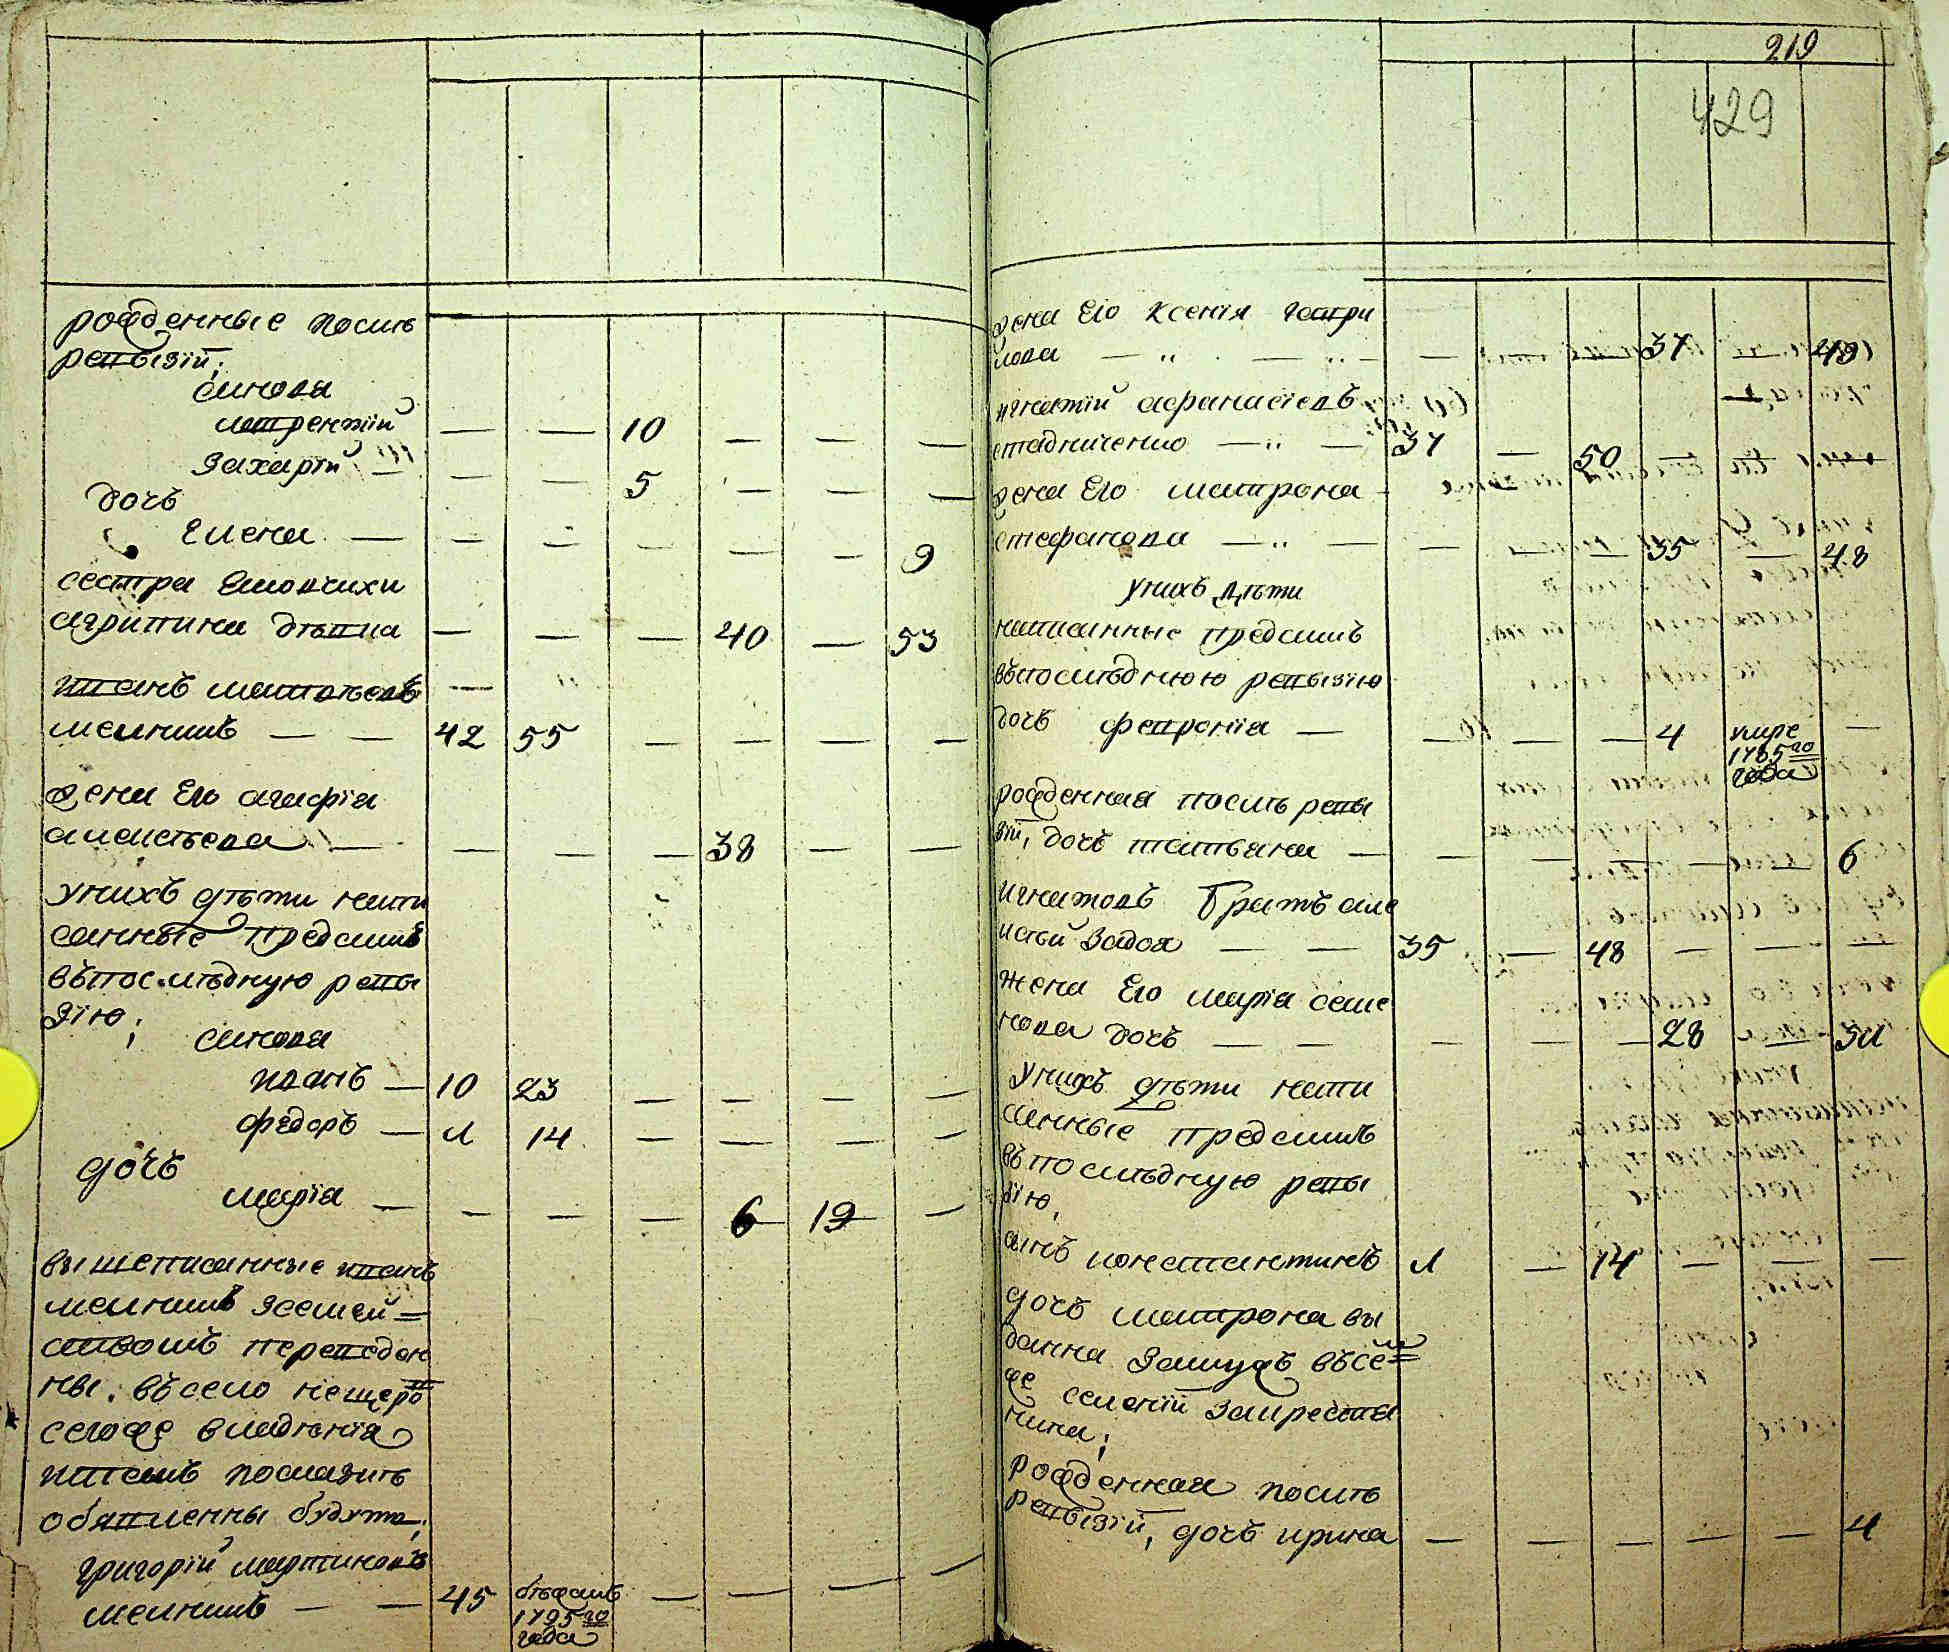 рожденные после
ревизіи;
синове
лаврентій — — 10 — — —
Захарій — — 5 — — —
дочь
Елена — — — — — — 9
сестра
агрипина девка — — — 40 — 53
иванъ матвѣевъ —
мелникъ — — 42 55 — — — —
жена Его агафія
алексѣева — — — — 38 — —
унихъ дѣти напи
санные предсимъ
въпослѣдную реви
зію; синове
иванъ — 10 23 — — — —
федоръ — 1 14 — — — —
дочь
марія — — — — 6 19 —
вышеписанные иванъ
мелникъ зсемей=
ствомъ переведен
ны въ село нещеро
селоже владѣнія
и тамъ посказкѣ
обявленны будутъ;
григорій мартиновъ
мелникъ — — 45 бѣжалъ — — — —
1795го
года
219
429
жена Его Ксенія гаври
лова — — — — — 37 — 49
игнатій афанасіевъ
стадниченко — — 37 — 50 — — —
жена Его матрона
стефанова — — — — — 35 — 48
унихъ дѣти
написанные предсимъ
въпослѣднюю ревизію
дочь февронія — — — — 4 —
1785го
года
рожденная послѣ реви
зіи, дочь татьяна — — — — — — 6
игнатовъ братъ але
ксѣй — — 35 — 48 — — —
жена Его марія семе
нова дочь — — — — — 28 —
унихъ дѣти напи
санные предсимъ
въпослѣдную реви
зію,
синъ константинъ 1 — 14 — — —
дочь матрона вы
данна замужъ въсе=
же селеніи закрестя
нина;
рожденная послѣ
ревизіи, дочь ирина — — — — — 4